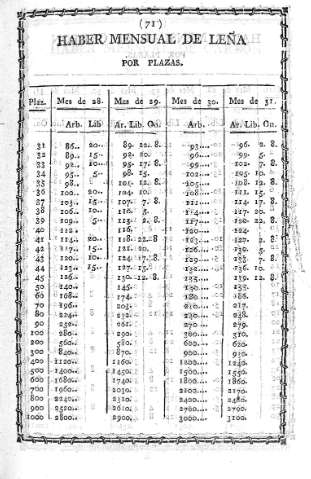 (71)
HABER MENSUAL DE LEÑA
POR PLAZAS.
Plaz. Mes de 28. Mes de 29. Mes de 30. Mes de 31.
Arb. Lib Ar. Lib. On. Arb. Ar. Lib. On.
31 86.. 20.. 89. 22. 8. 93.... 96. 2. 8.
32 89.. 15.. 92. 20. 96.... 99. 5.
33 92.. 10.. 95. 17. 8. 99.... 102. 7. 8.
34 95.. 5.. 98. 15. 102.... 105. 10.
35 98.. 101. 12. 8. 105.... 108. 12. 8.
36 100.. 20.. 104. 10. 108.... 111. 15.
37 103.. 15.. 107. 7. 8. 111.... 114. 17. 8.
38 106.. 10.. 110. 5. 114.... 117. 20.
39 109.. 5.. 113. 2. 8. 117.... 120. 22. 8.
40 112.. 116. 120.... 124.
41 114.. 20.. 118. 22. 8 123.... 127. 2. 8.
42 117.. 15.. 121. 20. 126.... 130. 5.
43 120.. 10.. 124. 17. 8. 129.... 133. 7. 8.
44 123.. 5.. 127. 15. 132.... 136. 10.
45 126.. 130. 12. 8. 135.... 139. 12. 8.
50 140.. 145. 150.... 155.
60 168.. 174. 180.... 186.
70 196.. 203. 210.... 217.
80 224.. 232. 240.... 248.
90 252.. 261. 270.... 279.
100 280.. 290. 300.... 310.
200 560.. 580. 600.... 620.
300 840.. 870. 900.... 930.
400 1120.. 1160. 1200.... 1240.
500 1400.. 1450. 1500.... 1550.
600 1680.. 1740. 1800.... 1860.
700 1960.. 2030. 2100.... 2170.
800 2240.. 2320. 2400.... 2480.
900 2520.. 2610. 2700.... 2790.
1000 2800.. 2900. 3000.... 3100.